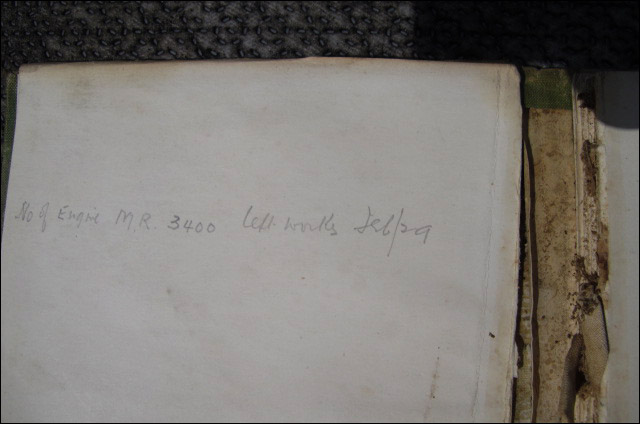 No of Engine M.R. 3400 left works Feb/29